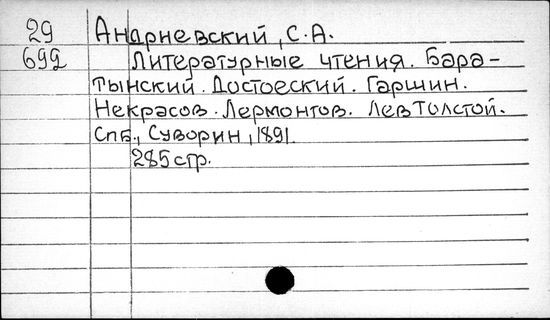 29 Андриевский, С.А.
699 Литературные чтения. Бара-
тынский. Достоеский. Гаршин.
Некрасов. Лермонтов. Лев Толстой.
Спб., Суворин, 1891.
285 стр.